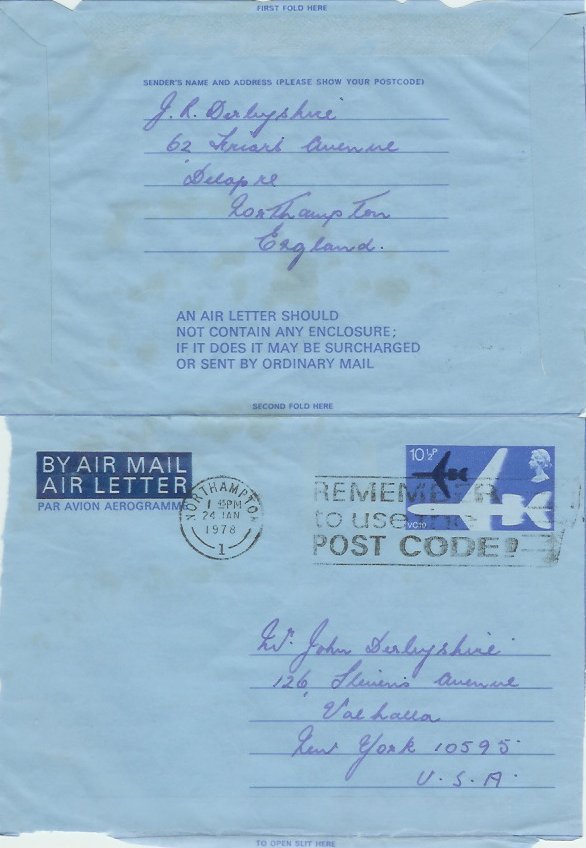 FIRST FOLD HERE
SENDER'S NAME AND ADDRESS (PLEASE SHOW YOUR POSTCODE)
J. R. Derbyshire
62 Friars Avenue
Delapre
Northampton
England.
AN AIR LETTER SHOULD
NOT CONTAIN ANY ENCLOSURE;
IF IT DOES IT MAY BE SURCHARGED
OR SENT BY ORDINARY MAIL
SECOND FOLD HERE
BY AIR MAIL
AIR LETTER
PAR AVION AEROGRAMME
NORTHAMPTON
PM
24 JAN
1978
1
10½P
VC10
REMEMBER
to use the
POST CODE!
Mr. John Derbyshire
126, Stevens Avenue
Valhalla
New York 10595
U.S.A.
TO OPEN SLIT HERE